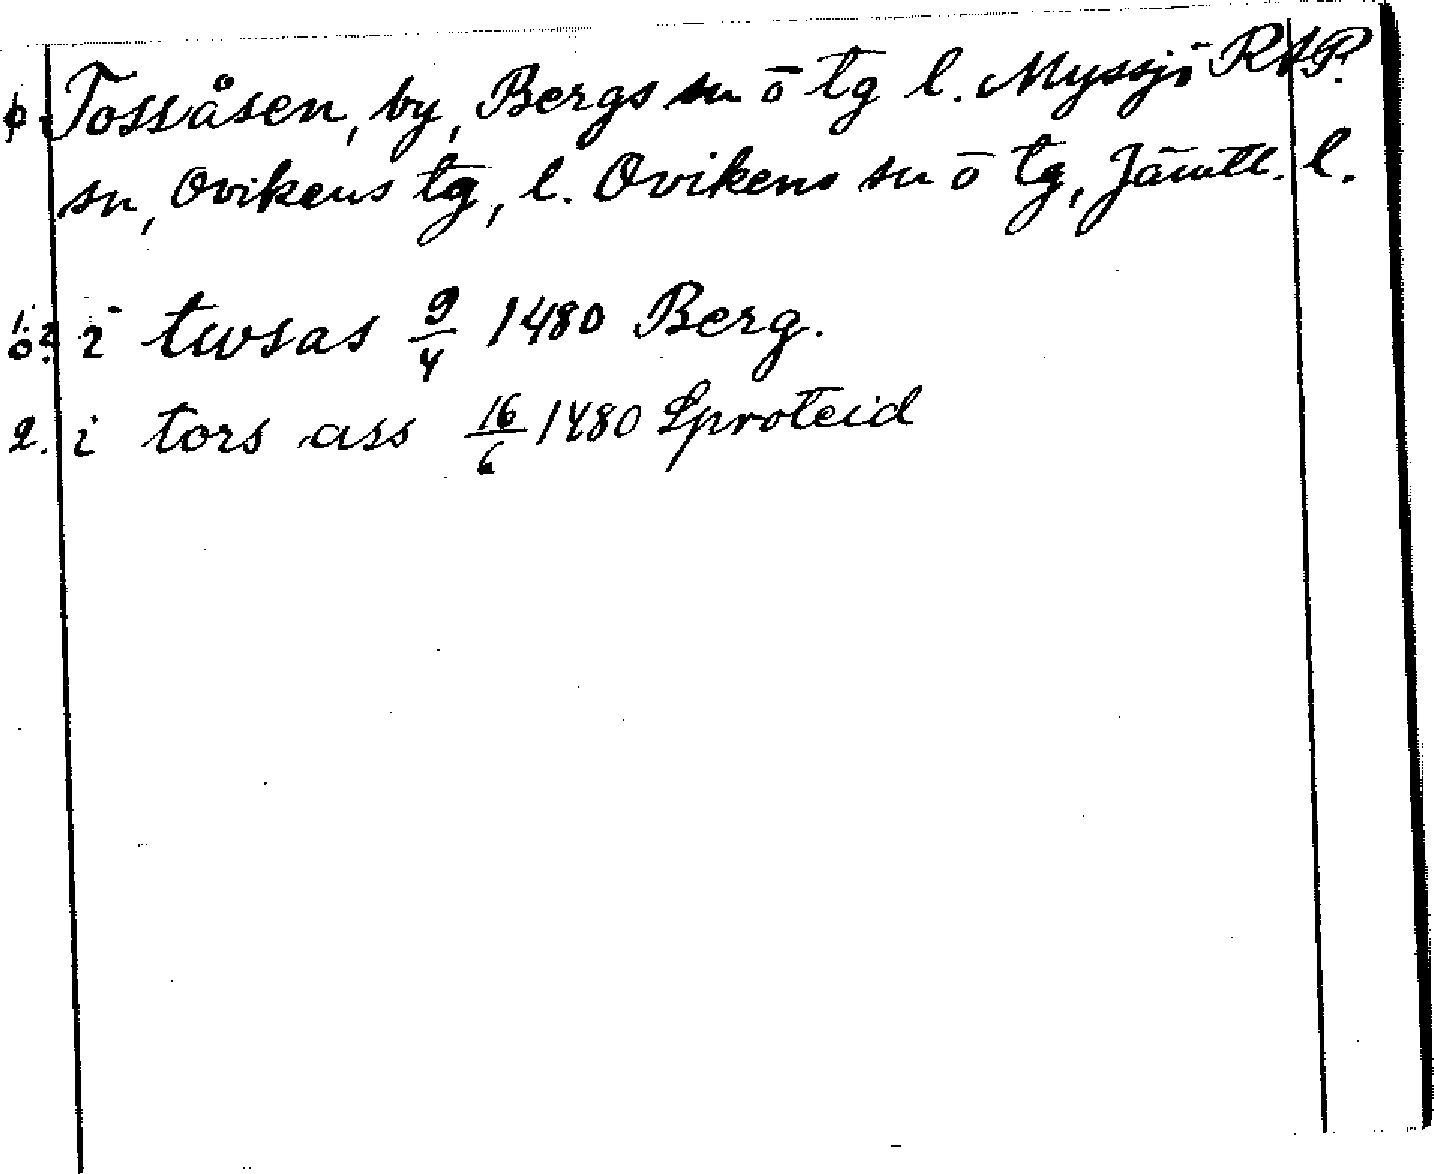 p. Tossåsen, by, Bergs sn o tg l. Myssjö RAP.
sn, Ovikens tg, l. Ovikens sn o tg, Jämtl. l.
1. ö? i twsas 9/4 1480 Berg.
2. i tors ass 16/6 1480 Sproteid